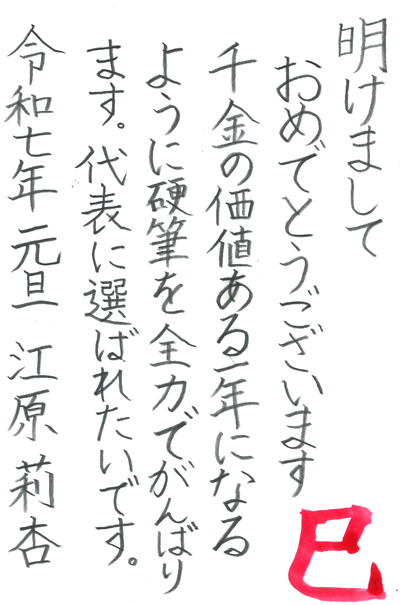 明けまして
おめでとうございます
千金の価値ある一年になる
ように硬筆を全力でがんばり
ます。代表に選ばれたいです。
令和七年 元旦 江原 莉杏
巳